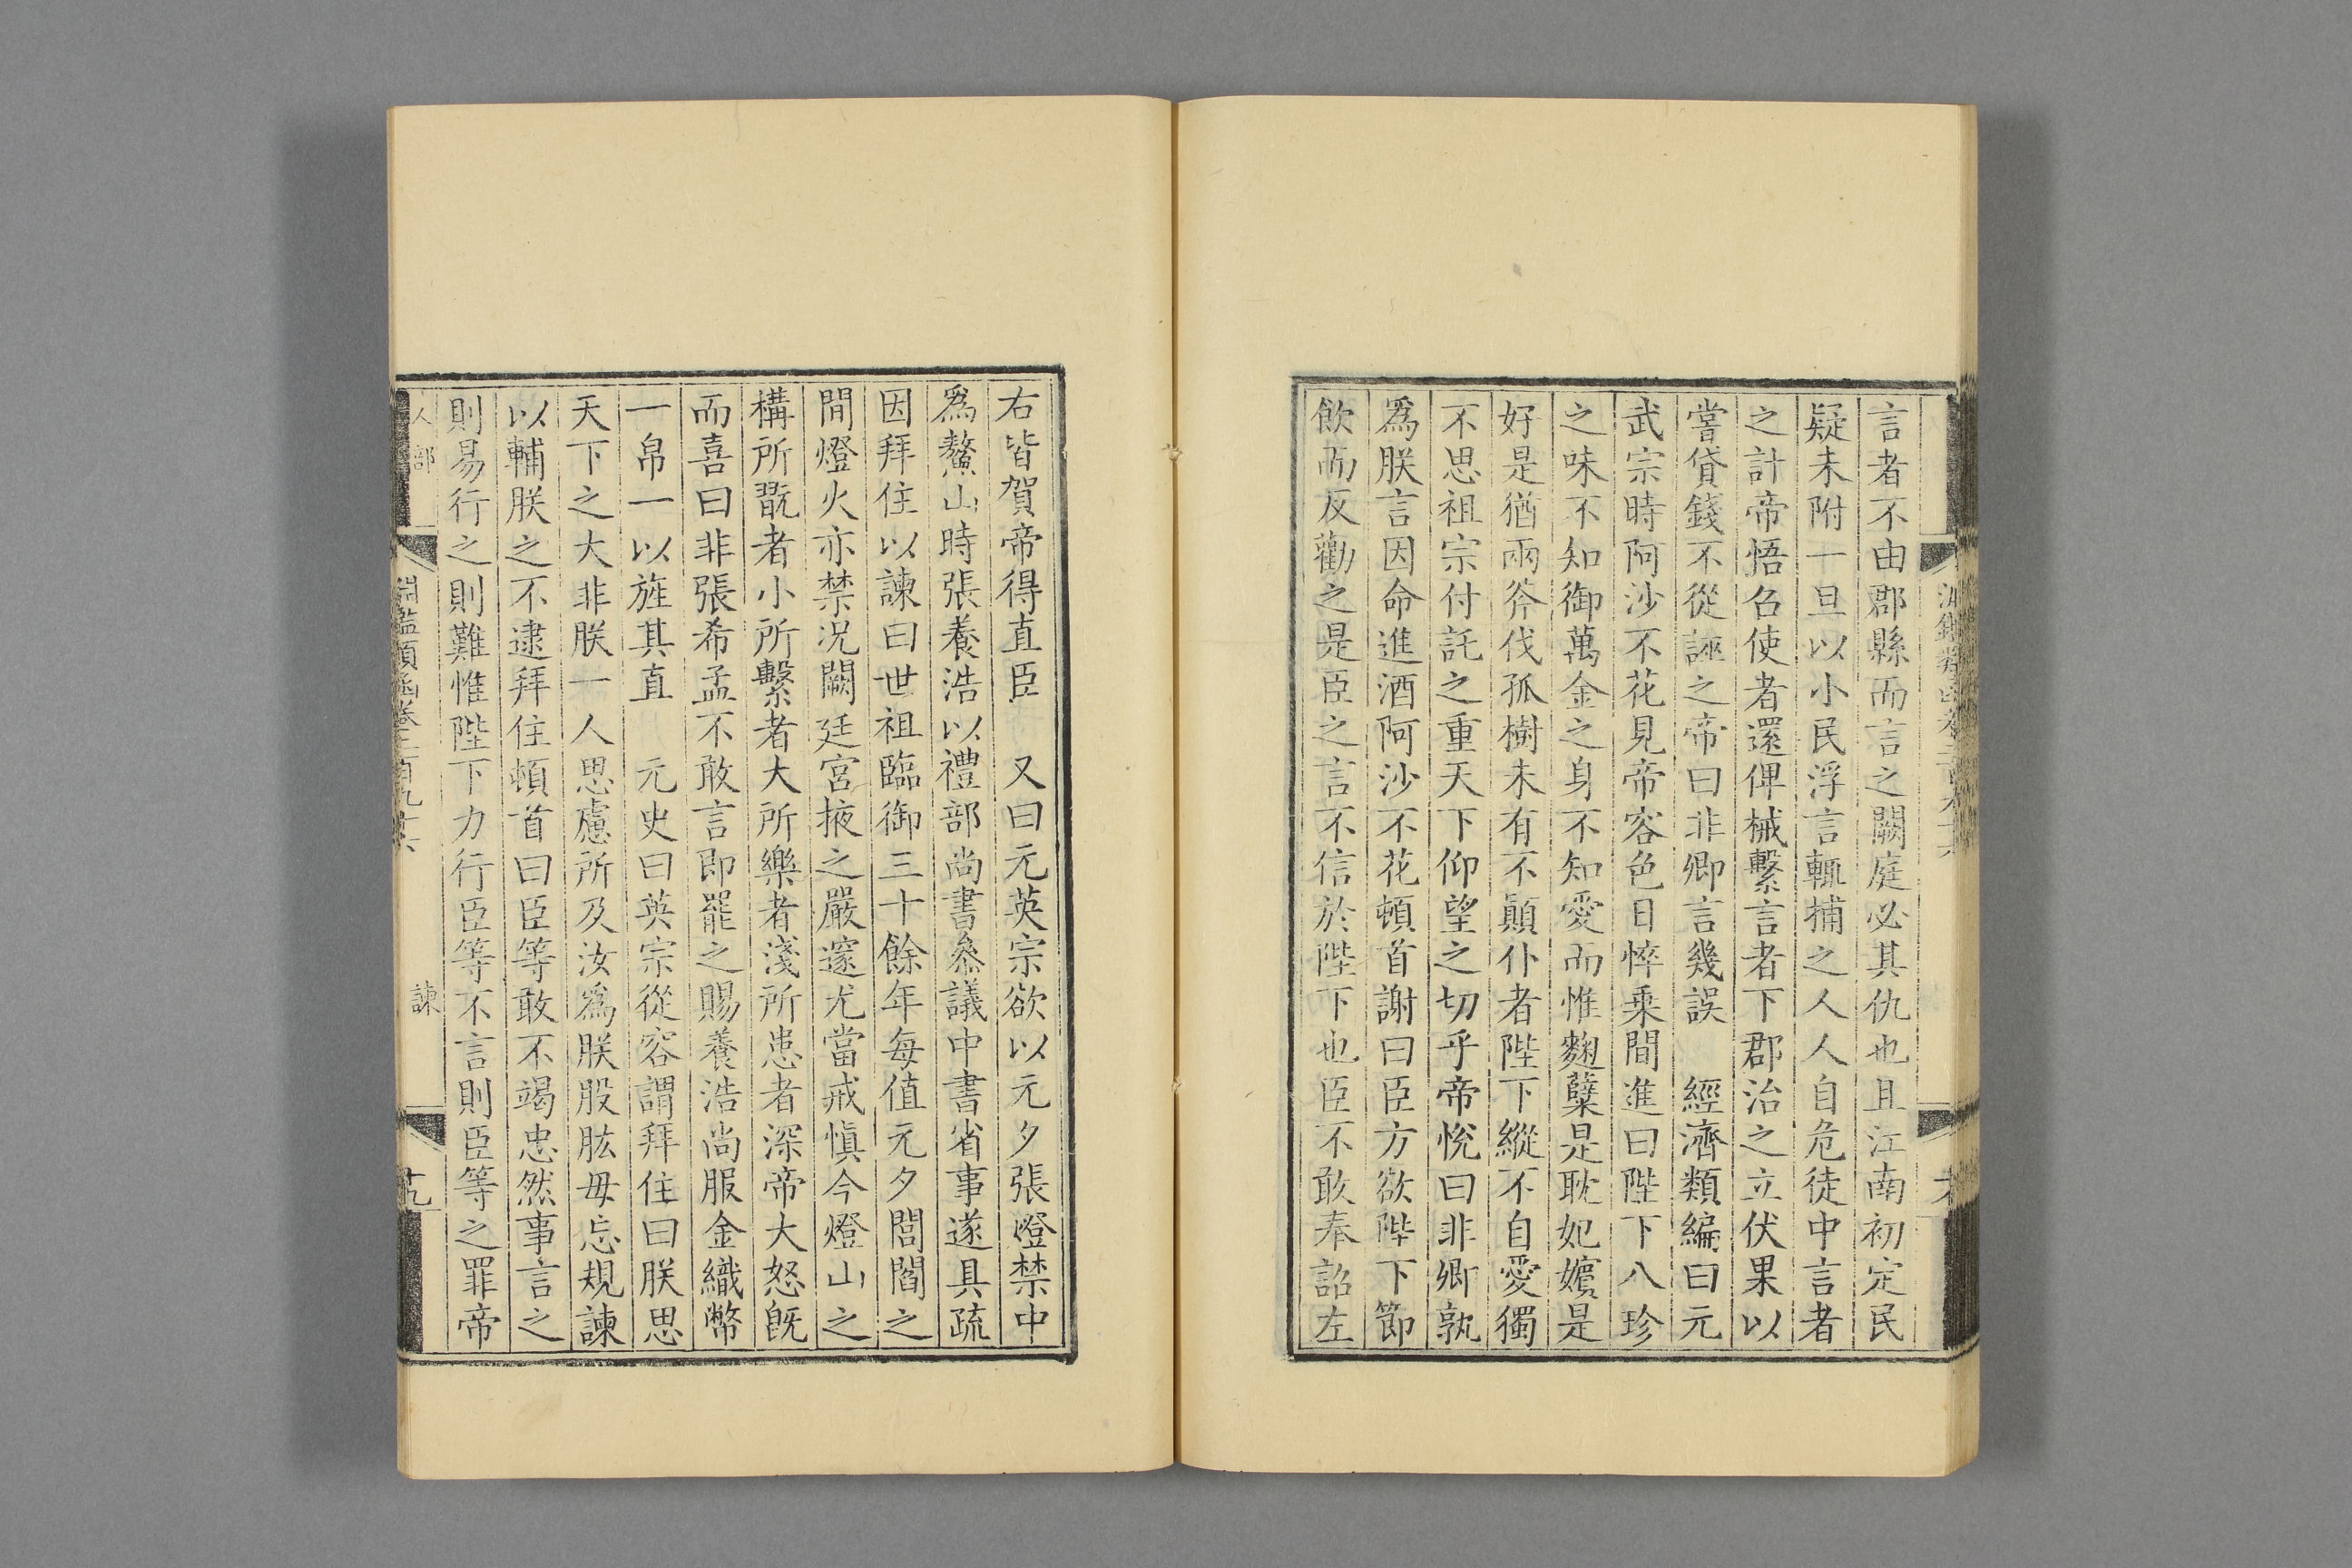 言者不由郡縣而言之闕庭必其仇也且江南初定民
疑未附一旦以小民浮言輒捕之人人自危徒中言者
之計帝悟召使者還俾械繫言者下郡治之立伏果以
嘗貸錢不從誣之帝曰非卿言幾誤　經濟類編曰元
武宗時阿沙不花見帝容色日悴乘間進曰陛下八珍
之味不知御萬金之身不知愛而惟麴蘗是耽妃嬪是
好是猶兩斧伐孤樹未有不顛仆者陛下縱不自愛獨
不思祖宗付託之重天下仰望之切乎帝悅曰非卿孰
爲朕言因命進酒阿沙不花頓首謝曰臣方欲陛下節
飲而反勸之是臣之言不信於陛下也臣不敢奉詔左
右皆賀帝得直臣　又曰元英宗欲以元夕張燈禁中
爲鰲山時張養浩以禮部尚書叅議中書省事遂具疏
因拜住以諫曰世祖臨御三十餘年每值元夕閭閻之
間燈火亦禁况闕廷宮掖之嚴邃尤當戒慎今燈山之
構所翫者小所繫者大所樂者淺所患者深帝大怒旣
而喜曰非張希孟不敢言即罷之賜養浩尚服金織幣
一帛一以旌其直　元史曰英宗從容謂拜住曰朕思
天下之大非朕一人思慮所及汝爲朕股肱毋忘規諫
以輔朕之不逮拜住頓首曰臣等敢不竭忠然事言之
則易行之則難惟陛下力行臣等不言則臣等之罪帝
人部
淵鑑類函卷二百九十六
諫
十九